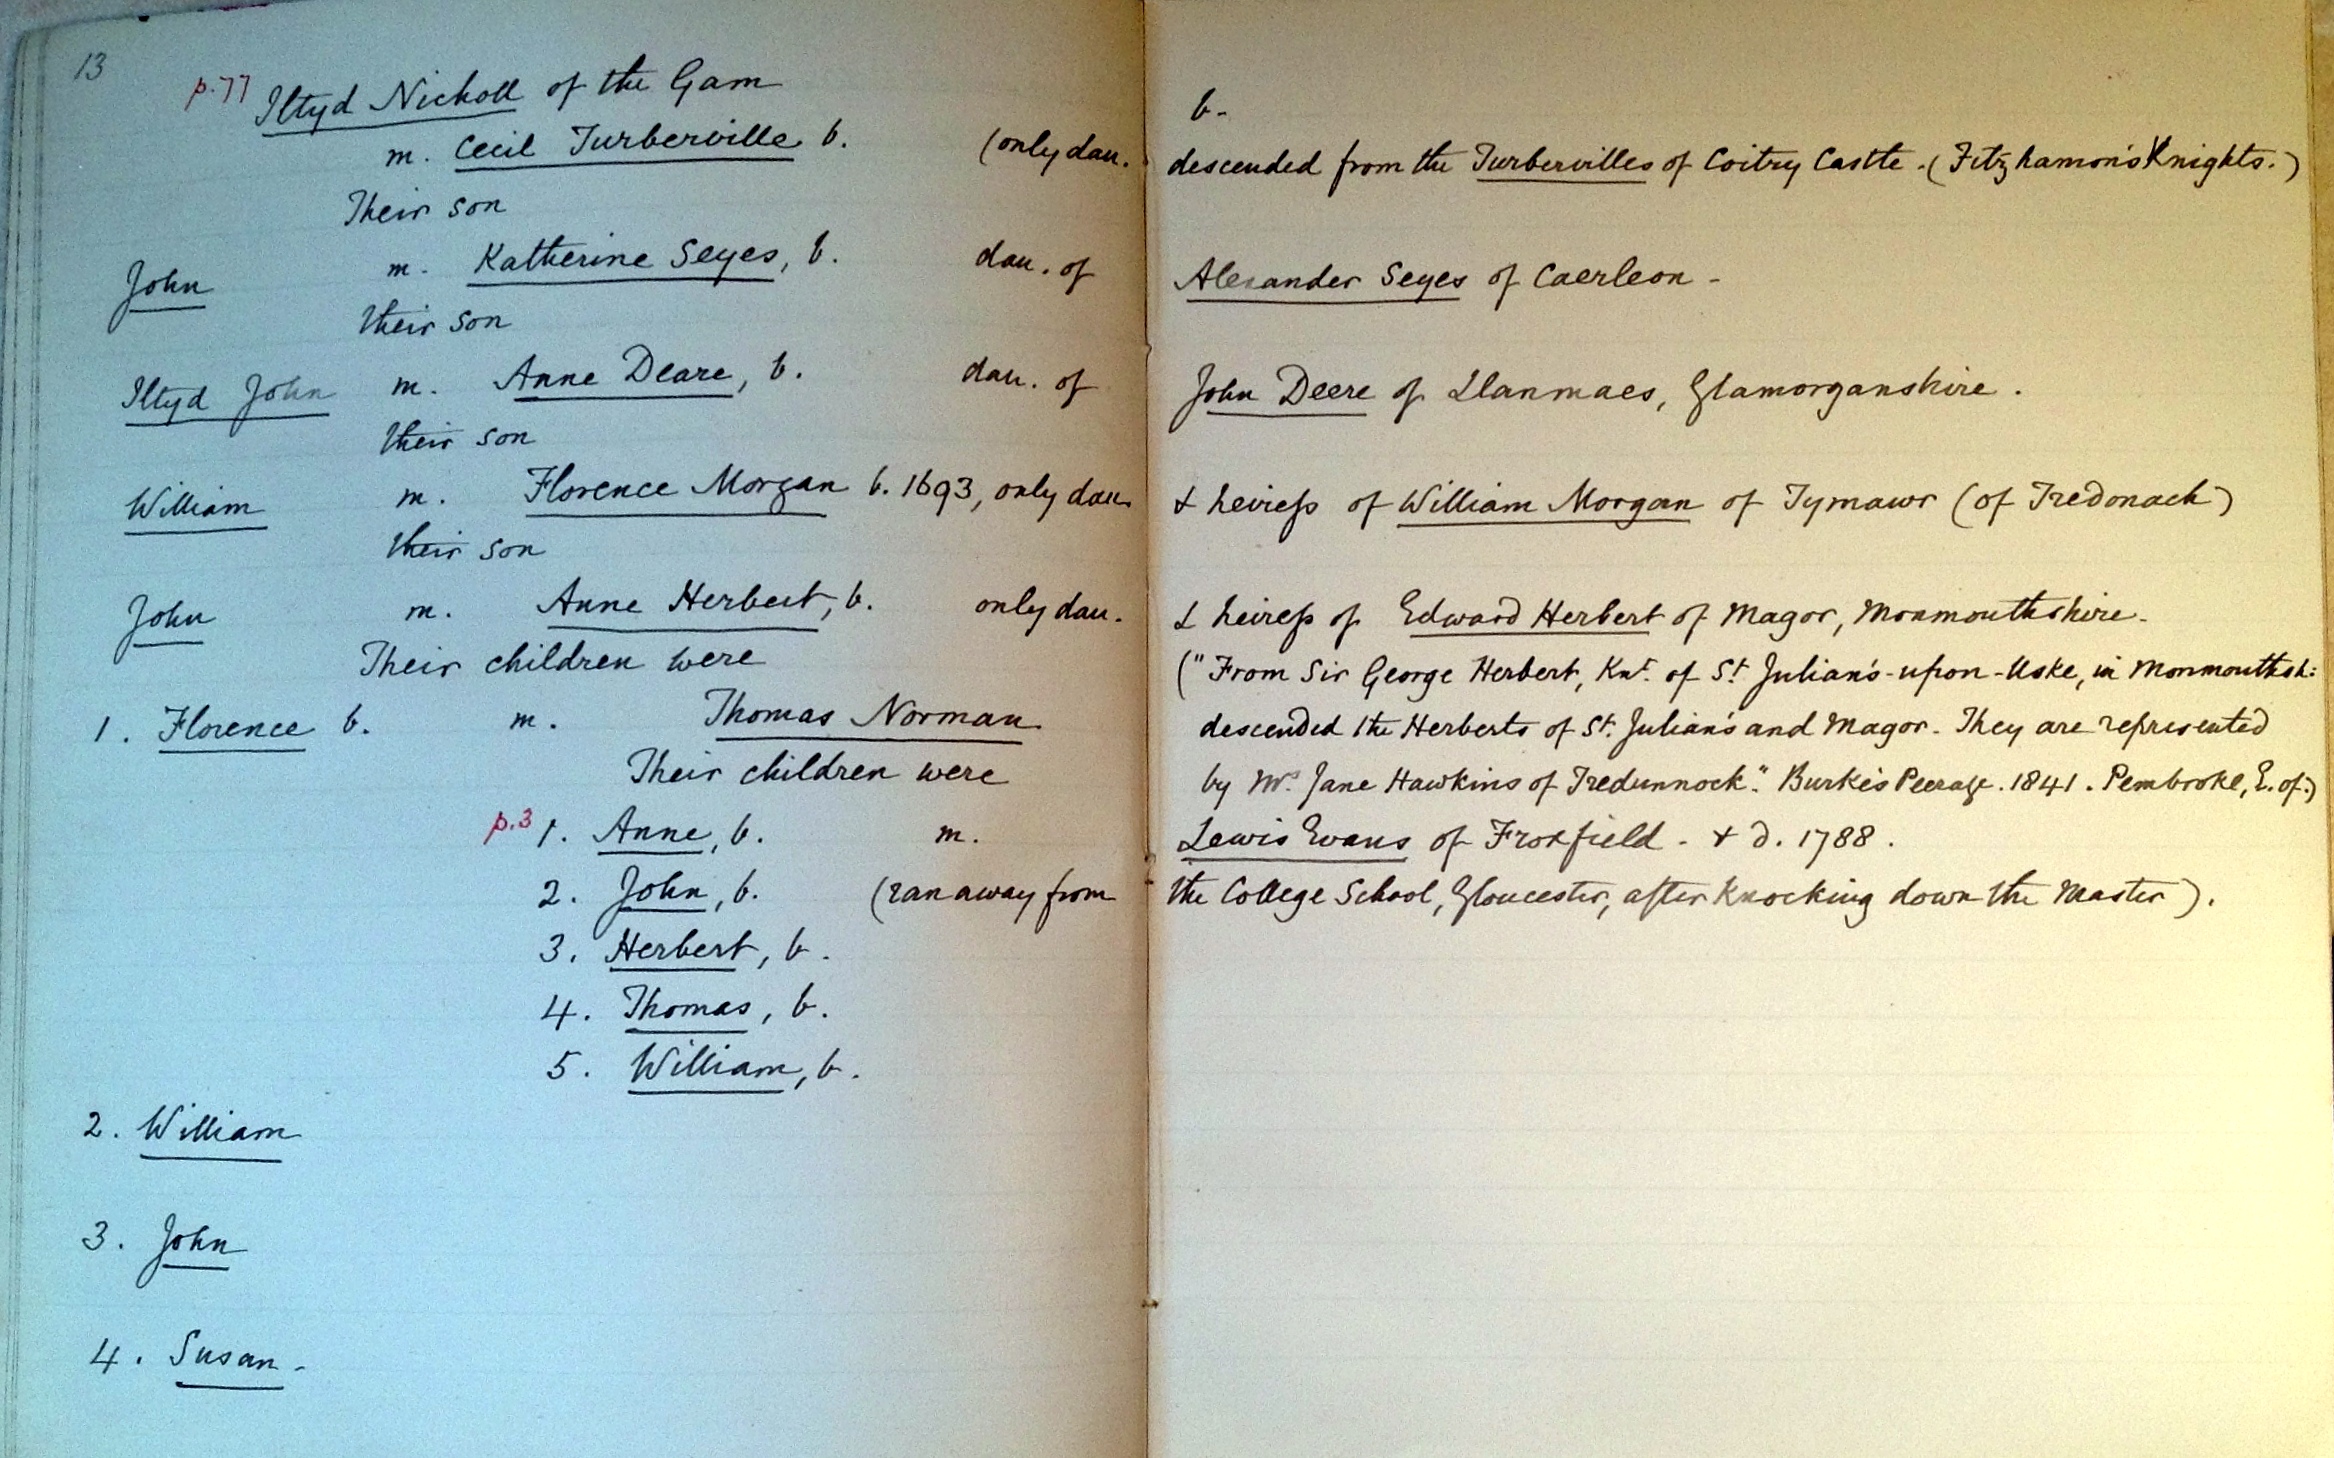 13
p.77 Iltyd Nicholl of the Gam b-
m. Cecil Turberville b. (only dau. descended from the Turbervilles of Coitry Castle. (Fitzhamon's Knights.)
Their son
John m. Katherine Seyes, b. dau. of Alexander Seyes of Caerleon -
their son
Iltyd John m. Anne Deare, b. dau. of John Deere of Llanmaes, Glamorganshire.
their son
William m. Florence Morgan b. 1693, only dau. & heiress of William Morgan of Tymawr (of Tredonack)
their son
John m. Anne Herbert, b. only dau. & heiress of Edward Herbert of Magor, Monmouthshire.
Their children were ("From Sir George Herbert, Knt. of St. Julian's-upon-Uske, in Monmouthsh:
1. Florence b. m. Thomas Norman descended the Herberts of St. Julian's and Magor. They are represented
Their children were by Mrs. Jane Hawkins of Tredunnock." Burke's Peerage. 1841. Pembroke, E. of.)
p.3 1. Anne, b. m. Lewis Evans of Froxfield. & d. 1788.
2. John, b. (ran away from the College School, Gloucester, after knocking down the Master).
3. Herbert, b.
4. Thomas, b.
5. William, b.
2. William
3. John
4. Susan -